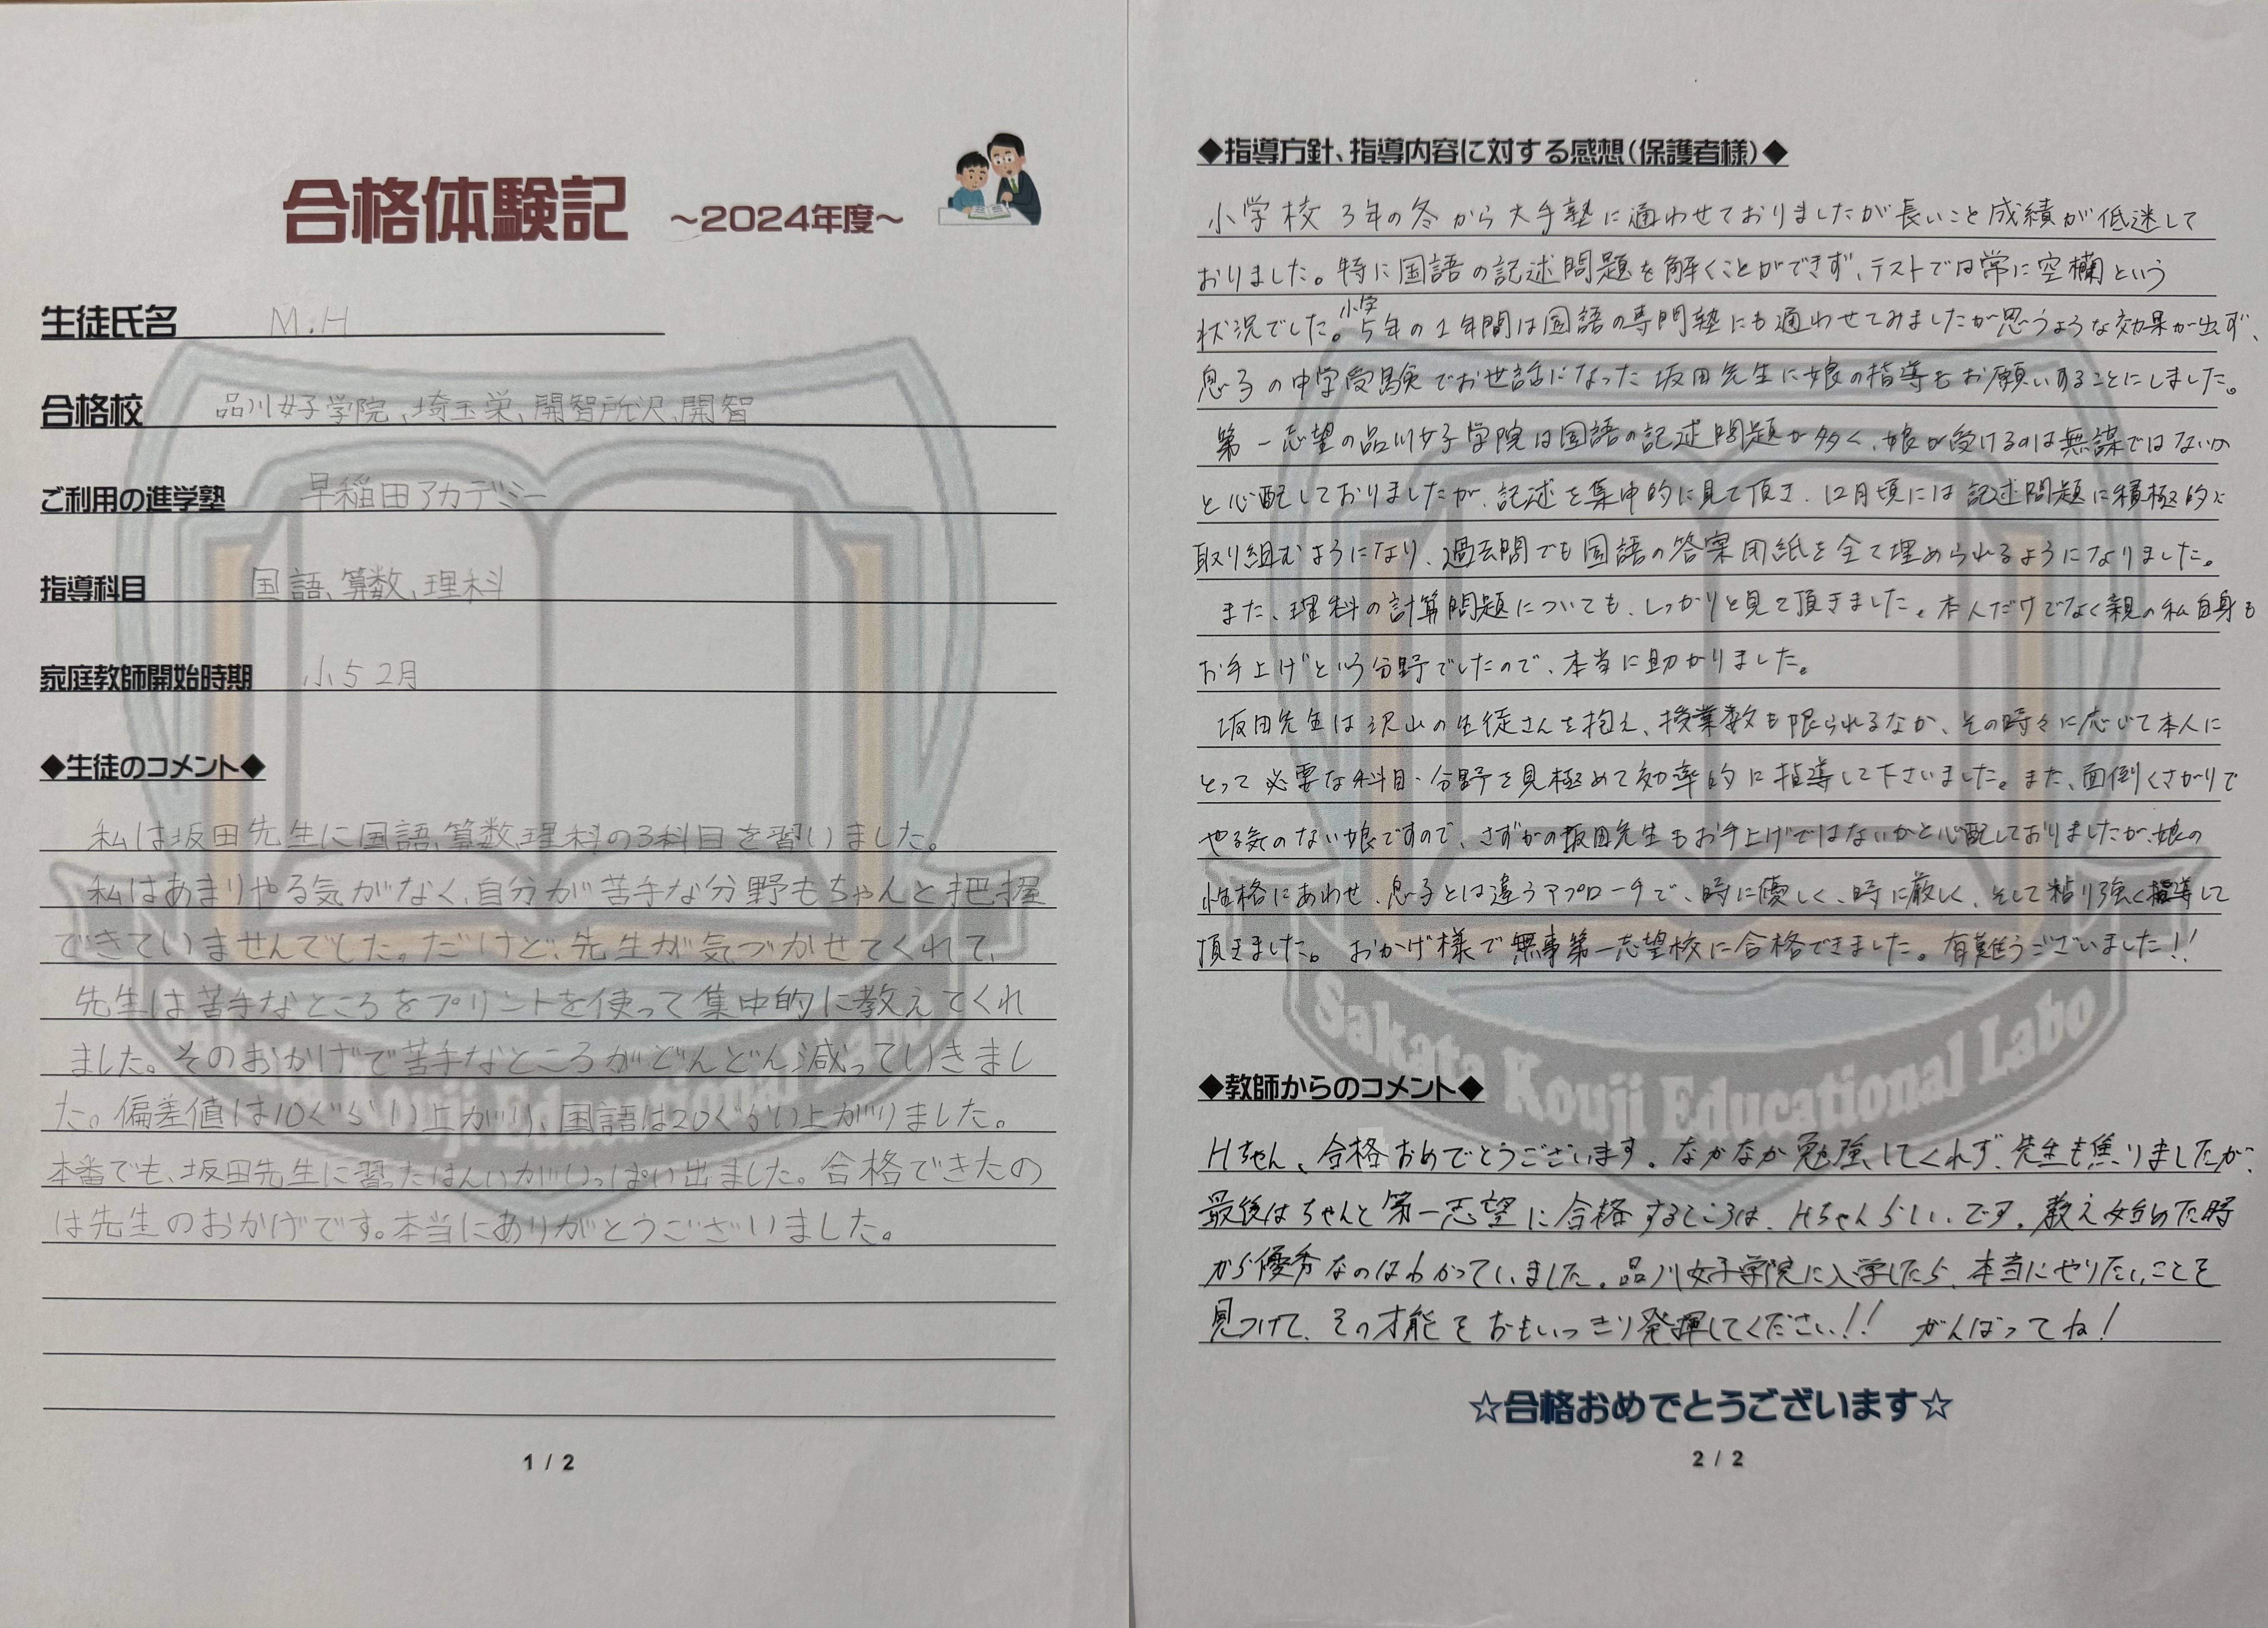 合格体験記 ～2024年度～
生徒氏名 M.H
合格校 品川女子学院、埼玉栄、開智所沢、開智
ご利用の進学塾 早稲田アカデミー
指導科目 国語、算数、理科
家庭教師開始時期 小5 2月
◆生徒のコメント◆
私は坂田先生に国語、算数、理科の3科目を習いました。
私はあまりやる気がなく、自分が苦手な分野もちゃんと把握
できていませんでした。だけど、先生が気づかせてくれて、
先生は苦手なところをプリントを使って集中的に教えてくれ
ました。そのおかげで苦手なところがどんどん減っていきまし
た。偏差値は10ぐらい上がり、国語は20ぐらい上がりました。
本番でも、坂田先生に習ったはんいがいっぱい出ました。合格できたの
は先生のおかげです。本当にありがとうございました。
1 / 2
◆指導方針、指導内容に対する感想(保護者様)◆
小学校3年の冬から大手塾に通わせておりましたが長いこと成績が低迷して
おりました。特に国語の記述問題を解くことができず、テストでは常に空欄という
状況でした。小学5年の1年間は国語の専門塾にも通わせてみましたが思うような効果が出ず、
息子の中学受験でお世話になった坂田先生に娘の指導もお願いすることにしました。
第一志望の品川女子学院は国語の記述問題が多く、娘が受けるのは無謀ではないか
と心配しておりましたが、記述を集中的に見て頂き、12月頃には記述問題に積極的に
取り組むようになり、過去問でも国語の答案用紙を全て埋められるようになりました。
また、理科の計算問題についても、しっかりと見て頂きました。本人だけでなく親の私自身も
お手上げという分野でしたので、本当に助かりました。
坂田先生は沢山の生徒さんを抱え、授業数も限られるなか、その時々に応じて本人に
とって必要な科目・分野を見極めて効率的に指導して下さいました。また、面倒くさがりで
やる気のない娘ですので、さすがの坂田先生もお手上げではないかと心配しておりましたが、娘の
性格にあわせ、息子とは違うアプローチで、時に優しく、時に厳しく、そして粘り強く指導して
頂きました。おかげ様で無事第一志望校に合格できました。有難うございました!!
Sakata Kouji Educational Labo
◆教師からのコメント◆
Hちゃん、合格おめでとうございます。なかなか勉強してくれず、先生も焦りましたが、
最後はちゃんと第一志望に合格するところは、Hちゃんらしいです。教え始めた時
から優秀なのはわかっていました。品川女子学院に入学したら、本当にやりたいことを
見つけて、その才能をおもいっきり発揮してください!! がんばってね!
☆合格おめでとうございます☆
2 / 2